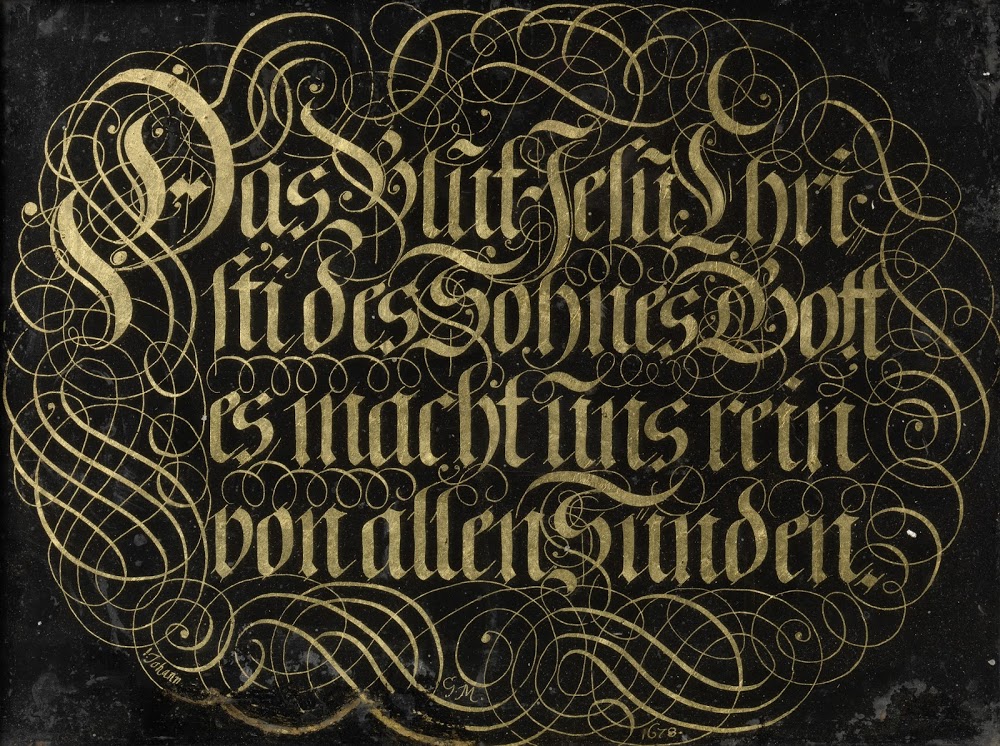 Das Blut Jeſu Chri
ſti des Sohnes Gott
es macht uns rein
von allen Sünden.
1. Johann
1678